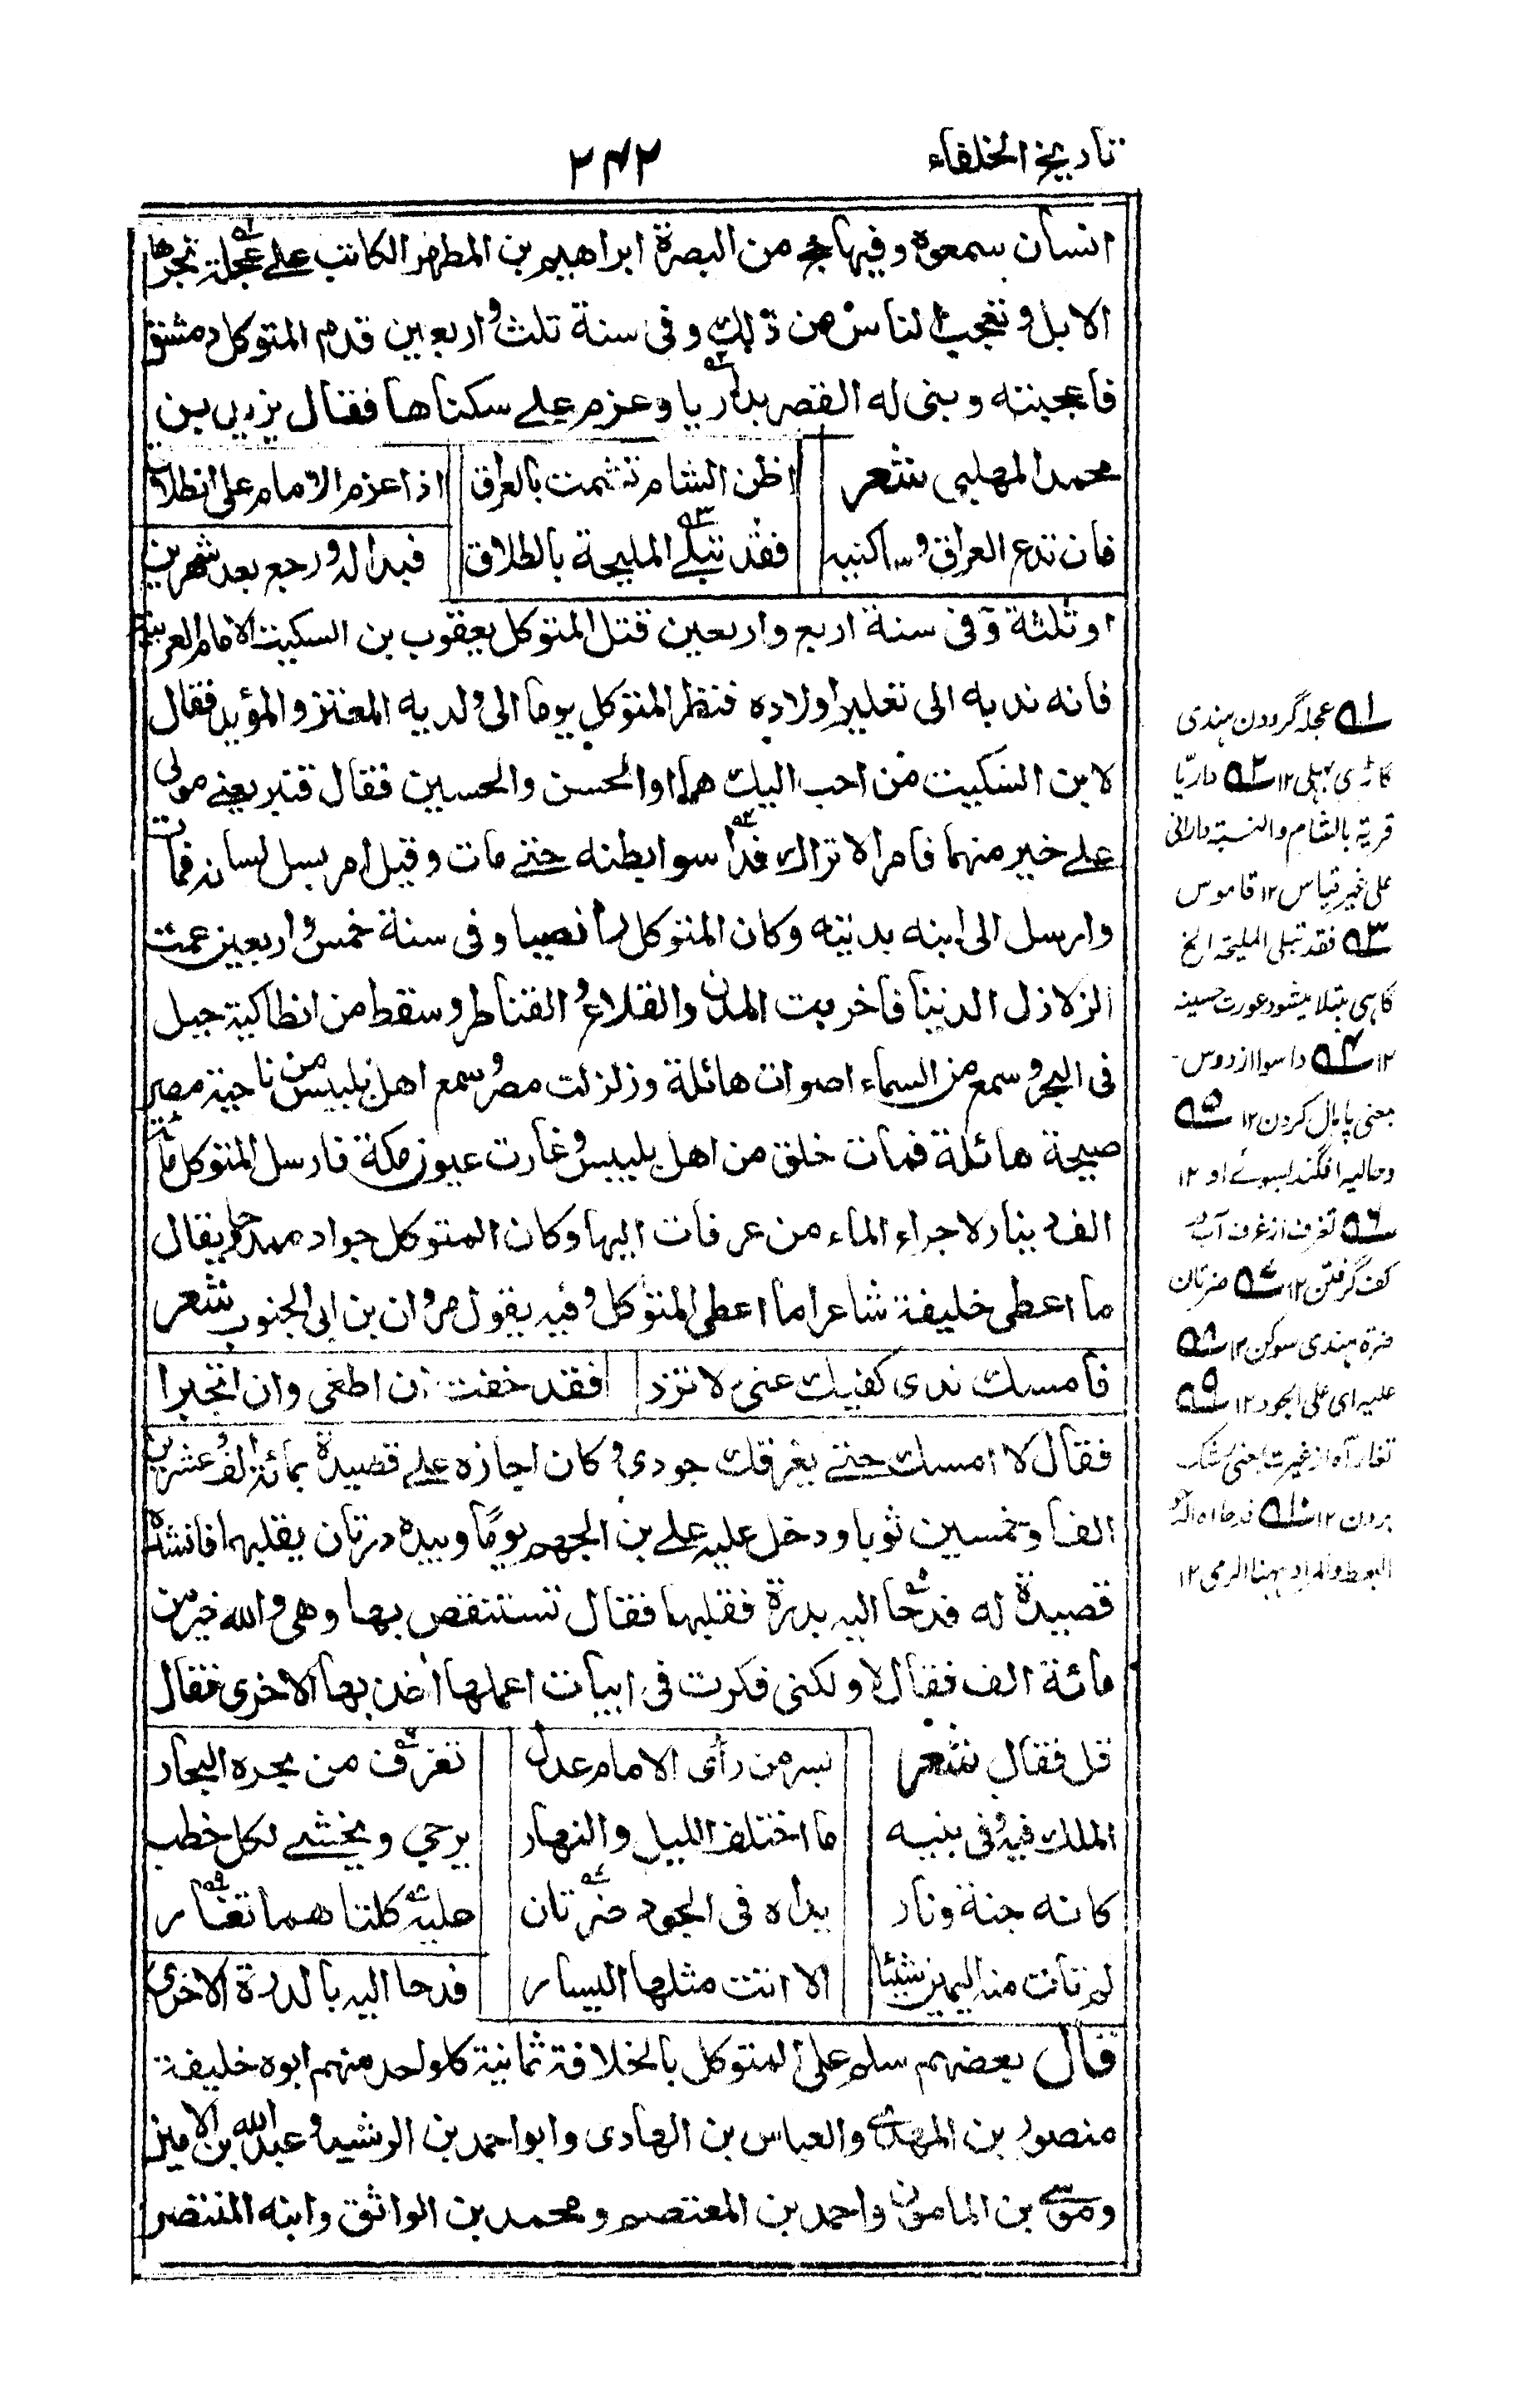 تاريخ الخلفاء
٢٤٢
انسان سمعوه وفيها حج من البصرة ابراهيم بن المطهر الكاتب على عجلة تجرها
الابل وتعجب الناس من ذلك وفى سنة ثلث واربعين قدم المتوكل دمشق
فاعجبته وبنى له القصر بداريا وعزم على سكناها فقال يزيد بن
محمد المهلبى شعر اظن الشام تشمت بالعراق اذا عزم الامام على انطلاق
فان تدع العراق وساكنيه فقد تبلى المليحة بالطلاق فبدا له ورجع بعد شهرين
او ثلثة وفى سنة اربع واربعين قتل المتوكل يعقوب بن السكيت الامام فى العربية
فانه ندبه الى تعليم اولاده فنظر المتوكل يوما الى ولديه المعتز والمؤيد فقال
لابن السكيت من احب اليك هما او الحسن والحسين فقال قنبر يعنى مولى
على خير منهما فامر الاتراك فداسوا بطنه حتى مات وقيل امر بسل لسانه فمات
وارسل الى ابنه بديته وكان المتوكل رافضيا وفى سنة خمس واربعين عمت
الزلازل الدنيا فاخربت المدن والقلاع والقناطر وسقط من انطاكية جبل
فى البحر وسمع من السماء اصوات هائلة وزلزلت مصر وسمع اهل بلبيس من ناحية مصر
صيحة هائلة فمات خلق من اهل بلبيس وغارت عيون مكة فارسل المتوكل مائة
الف دينار لاجراء الماء من عرفات اليها وكان المتوكل جوادا ممدحا يقال
ما اعطى خليفة شاعرا ما اعطى المتوكل وفيه يقول مروان بن ابى الجنوب شعر
فامسك ندى كفيك عنى ولا تزد فقد خفت ان اطغى وان اتجبرا
فقال لا امسك حتى يغرقك جودى وكان اجازه على قصيدة بمائة الف وعشرين
الفا وخمسين ثوبا ودخل عليه على بن الجهم يوما وبيده درتان يقلبهما فانشده
قصيدة له فدحا اليه بدرة فقلبها فقال تستنقص بها وهى والله خير من
مائة الف فقال لا ولكنى فكرت فى ابيات اعملها اخذ بها الاخرى فقال
قل فقال شعر بسر من رأى الامام عدل تغرف من بحره البحار
الملك فيه وفى بنيه ما اختلف الليل والنهار يرجى ويخشى لكل خطب
كانه جنة ونار يداه فى الجود ضرتان عليه كلتا هما تغار
لم تات منه اليمين شيئا الا اتت مثلها اليسار فدحا اليه بالدرة الاخرى
قال بعضهم سلم على المتوكل بالخلافة ثمانية كل واحد منهم ابوه خليفة
منصور بن المهدى والعباس بن الهادى وابو احمد بن الرشيد وعبد الله بن الامين
وموسى بن المامون واحمد بن المعتصم ومحمد بن الواثق وابنه المنتصر
٥١ عجله گردون ہندى
گاڑى بہلى ١٢ ٥٢ داريّا
قرية بالشام والنسبة دارانى
على غير قياس ١٢ قاموس
٥٣ فقد تبلى المليحة الخ
گاہى مبتلا ميشود عورت حسينہ
١٢ ٥٤ داسوا از دوس
بمعنى پامال كردن ١٢ ٥٥
دحا اليه افگند بسوئے او ١٢
٥٦ تغرف از غرف آب
كف گرفتن ١٢ ٥٧ ضرتان
ضرة ہندى سوكن ١٢ ٥٨
عليه اى على الجود ١٢ ٥٩
تغار آه از غيرت بمعنى رشك
بردن ١٢ ٥١٠ فدحا
البسط والمراد ههنا الرمى ١٢